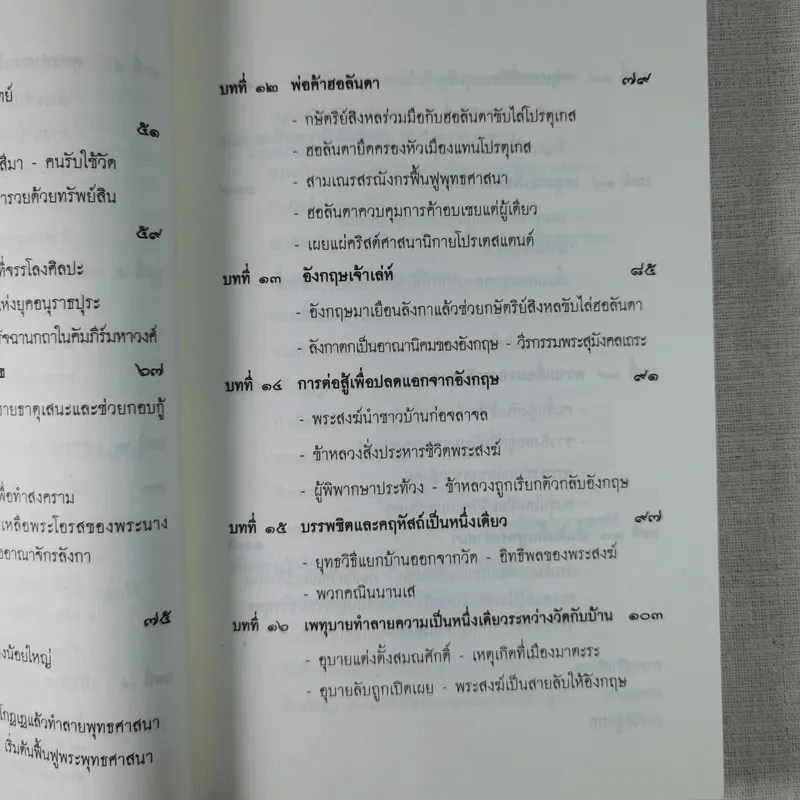 ทย์
๕๑
สีมา - คนรับใช้วัด
ำรวยด้วยทรัพย์สิน
๕๙
ที่จรรโลงศิลปะ
แห่งยุคอนุราธปุระ
รัจฉานกถาในคัมภีร์มหาวงศ์
๖๗
ชายธาตุเสนะและช่วยกอบกู้
พื่อทำสงคราม
เหลือพระโอรสของพระนาง
ออาณาจักรลังกา
๗๕
งน้อยใหญ่
โกฏเฏแล้วทำลายพุทธศาสนา
เริ่มต้นฟื้นฟูพระพุทธศาสนา
บทที่ ๑๒ พ่อค้าฮอลันดา ๗๙
- กษัตริย์สิงหลร่วมมือกับฮอลันดาขับไล่โปรตุเกส
- ฮอลันดายึดครองหัวเมืองแทนโปรตุเกส
- สามเณรสรณังกรฟื้นฟูพุทธศาสนา
- ฮอลันดาควบคุมการค้าอบเชยแต่ผู้เดียว
- เผยแผ่คริสต์ศาสนานิกายโปรเตสแตนต์
บทที่ ๑๓ อังกฤษเจ้าเล่ห์ ๘๕
- อังกฤษมาเยือนลังกาแล้วช่วยกษัตริย์สิงหลขับไล่ฮอลันดา
- ลังกาตกเป็นอาณานิคมของอังกฤษ - วีรกรรมพระสุมังคลเถระ
บทที่ ๑๔ การต่อสู้เพื่อปลดแอกจากอังกฤษ ๙๑
- พระสงฆ์นำชาวบ้านก่อจลาจล
- ข้าหลวงสั่งประหารชีวิตพระสงฆ์
- ผู้พิพากษาประท้วง - ข้าหลวงถูกเรียกตัวกลับอังกฤษ
บทที่ ๑๕ บรรพชิตและคฤหัสถ์เป็นหนึ่งเดียว ๙๗
- ยุทธวิธีแยกบ้านออกจากวัด - อิทธิพลของพระสงฆ์
- พวกคณินนานเส
บทที่ ๑๖ เพทุบายทำลายความเป็นหนึ่งเดียวระหว่างวัดกับบ้าน ๑๐๓
- อุบายแต่งตั้งสมณศักดิ์ - เหตุเกิดที่เมืองมาตะระ
- อุบายลับถูกเปิดเผย - พระสงฆ์เป็นสายลับให้อังกฤษ